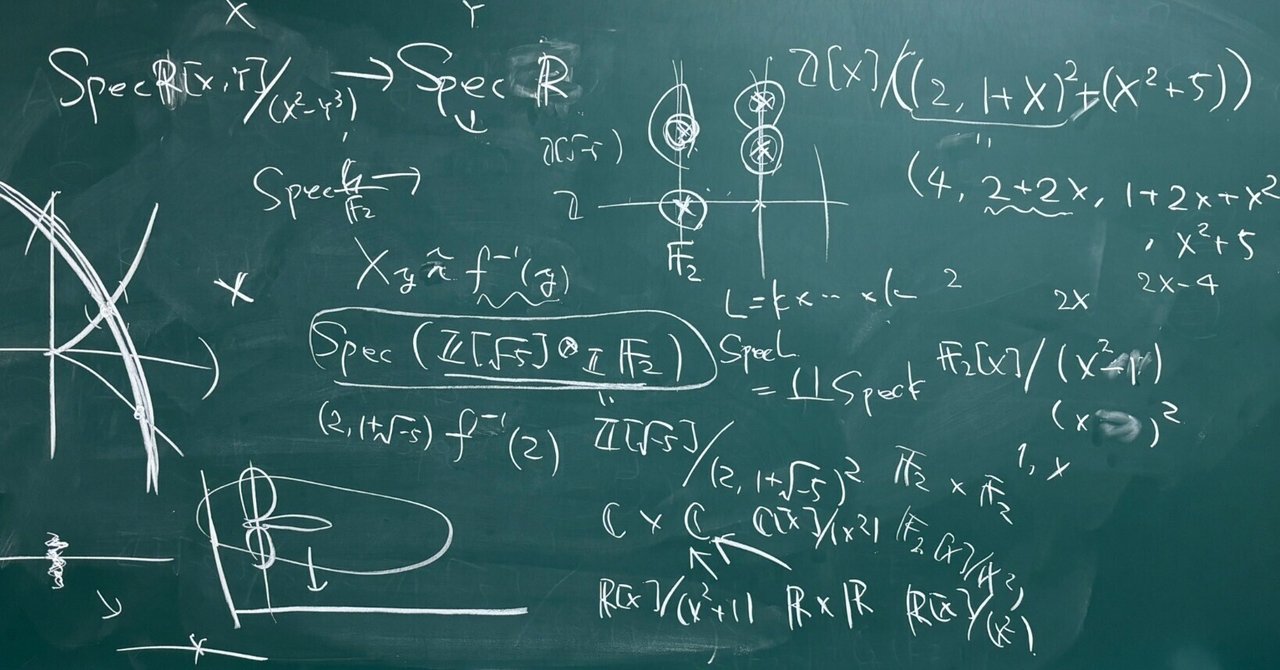 X Y
Spec ℝ[x,Y]/(x²-Y³) → Spec ℝ
ℤ[x]/((2, 1+x)²+(x²+5))
(4, 2+2x, 1+2x+x²
, x²+5
2x-4
2x
Spec 𝔽₂ →
ℤ
𝔽₂
X_y ≈ f⁻¹(y)
L=k×⋯×k
2
Spec (ℤ[√-5] ⊗_ℤ 𝔽₂)
Spec L
= ∐ Spec k
𝔽₂[x]/(x²-1)
(x )²
1, x
(2, 1+√-5) f⁻¹(2)
ℤ[√-5]/(2, 1+√-5)²
𝔽₂ × 𝔽₂
ℂ × ℂ ℂ[x]/(x²) 𝔽₂[x]/
ℝ[x]/(x²+1) ℝ×ℝ ℝ[x]/(x²)